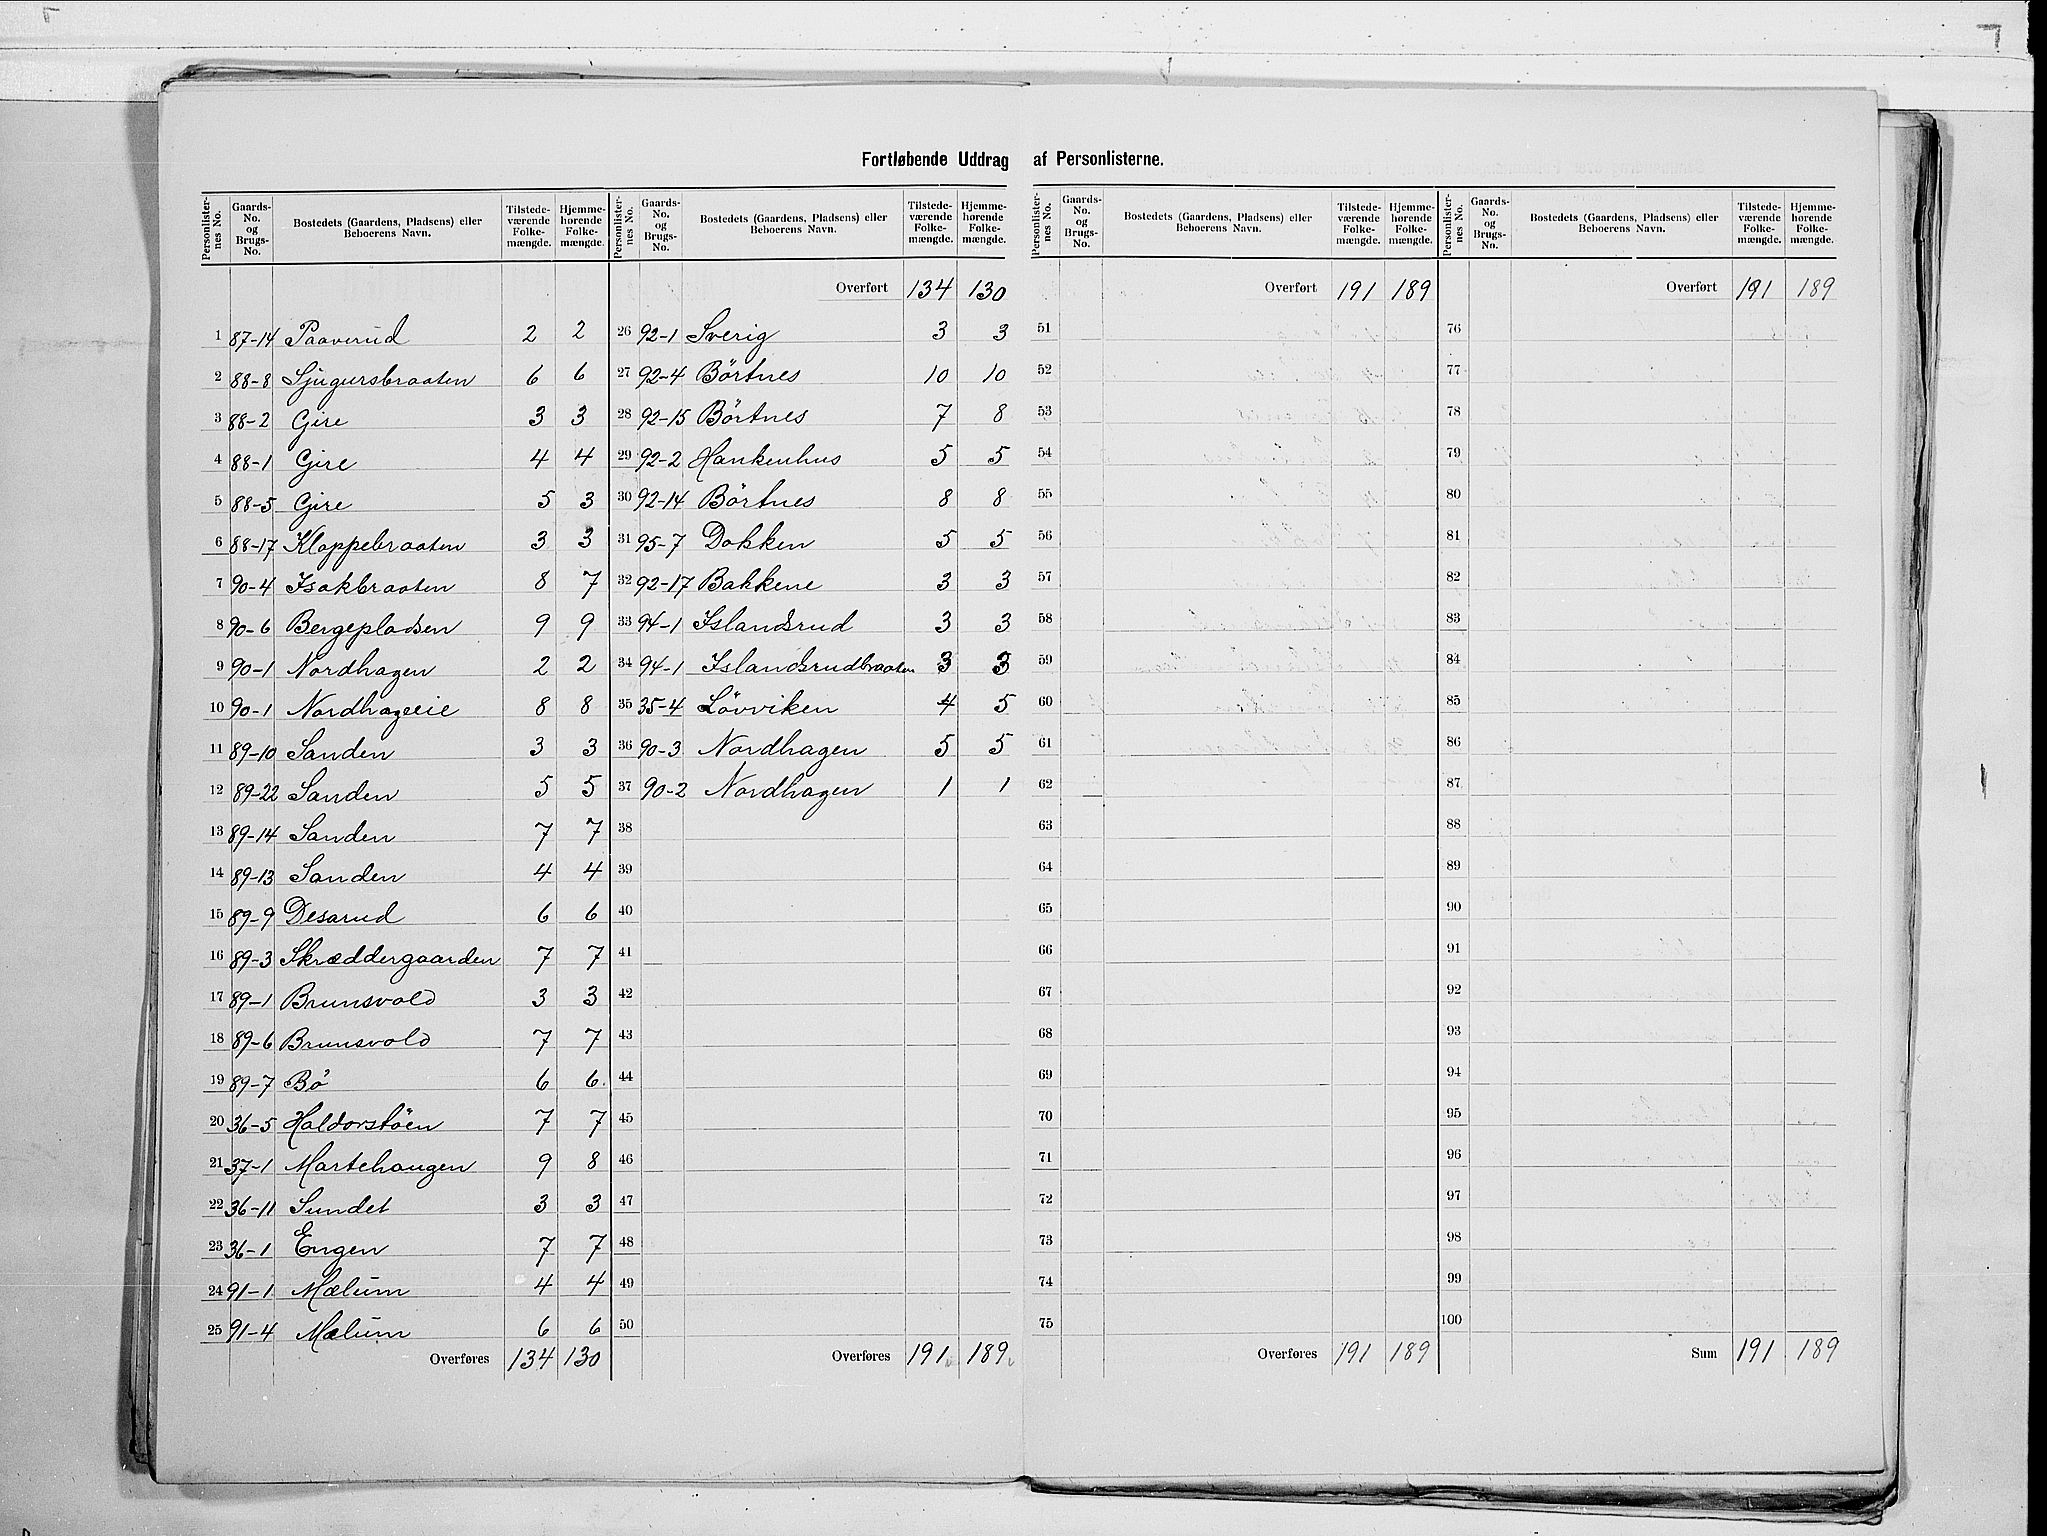 Fortløbende Uddrag af Personlisterne.
Personlister-nes No. Gaards-No. og Brugs-No. Bostedets (Gaardens, Pladsens) eller Beboerens Navn. Tilstede-værende Folke-mængde. Hjemme-hørende Folke-mængde.
1 87-14 Paaverud 2 2
2 88-8 Sjugursbraaten 6 6
3 88-2 Gire 3 3
4 88-1 Gire 4 4
5 88-5 Gire 5 3
6 88-17 Kloppebraaten 3 3
7 90-4 Isakbraaten 8 7
8 90-6 Bergepladsen 9 9
9 90-1 Nordhagen 2 2
10 90-1 Nordhageeie 8 8
11 89-10 Sanden 3 3
12 89-22 Sanden 5 5
13 89-14 Sanden 7 7
14 89-13 Sanden 4 4
15 89-9 Desarud 6 6
16 89-3 Skræddergaarden 7 7
17 89-1 Brunsvold 3 3
18 89-6 Brunsvold 7 7
19 89-7 Bö 6 6
20 36-5 Haldorstöen 7 7
21 37-1 Martehaugen 9 8
22 36-11 Sundet 3 3
23 36-1 Engen 7 7
24 91-1 Mælum 4 4
25 91-4 Mælum 6 6
Overføres 134 130
Personlister-nes No. Gaards-No. og Brugs-No. Bostedets (Gaardens, Pladsens) eller Beboerens Navn. Tilstede-værende Folke-mængde. Hjemme-hørende Folke-mængde.
Overført 134 130
26 92-1 Sverig 3 3
27 92-4 Börtnes 10 10
28 92-15 Börtnes 7 8
29 92-2 Hankenhus 5 5
30 92-14 Börtnes 8 8
31 95-7 Dokken 5 5
32 92-17 Bakkene 3 3
33 94-1 Islandsrud 3 3
34 94-1 Islandsrudbraaten 3 3
35 35-4 Lövviken 4 5
36 90-3 Nordhagen 5 5
37 90-2 Nordhagen 1 1
38
39
40
41
42
43
44
45
46
47
48
49
50
Overføres 191 189
Personlister-nes No. Gaards-No. og Brugs-No. Bostedets (Gaardens, Pladsens) eller Beboerens Navn. Tilstede-værende Folke-mængde. Hjemme-hørende Folke-mængde.
Overført 191 189
51
52
53
54
55
56
57
58
59
60
61
62
63
64
65
66
67
68
69
70
71
72
73
74
75
Overføres 191 189
Personlister-nes No. Gaards-No. og Brugs-No. Bostedets (Gaardens, Pladsens) eller Beboerens Navn. Tilstede-værende Folke-mængde. Hjemme-hørende Folke-mængde.
Overført 191 189
76
77
78
79
80
81
82
83
84
85
86
87
88
89
90
91
92
93
94
95
96
97
98
99
100
Sum 191 189